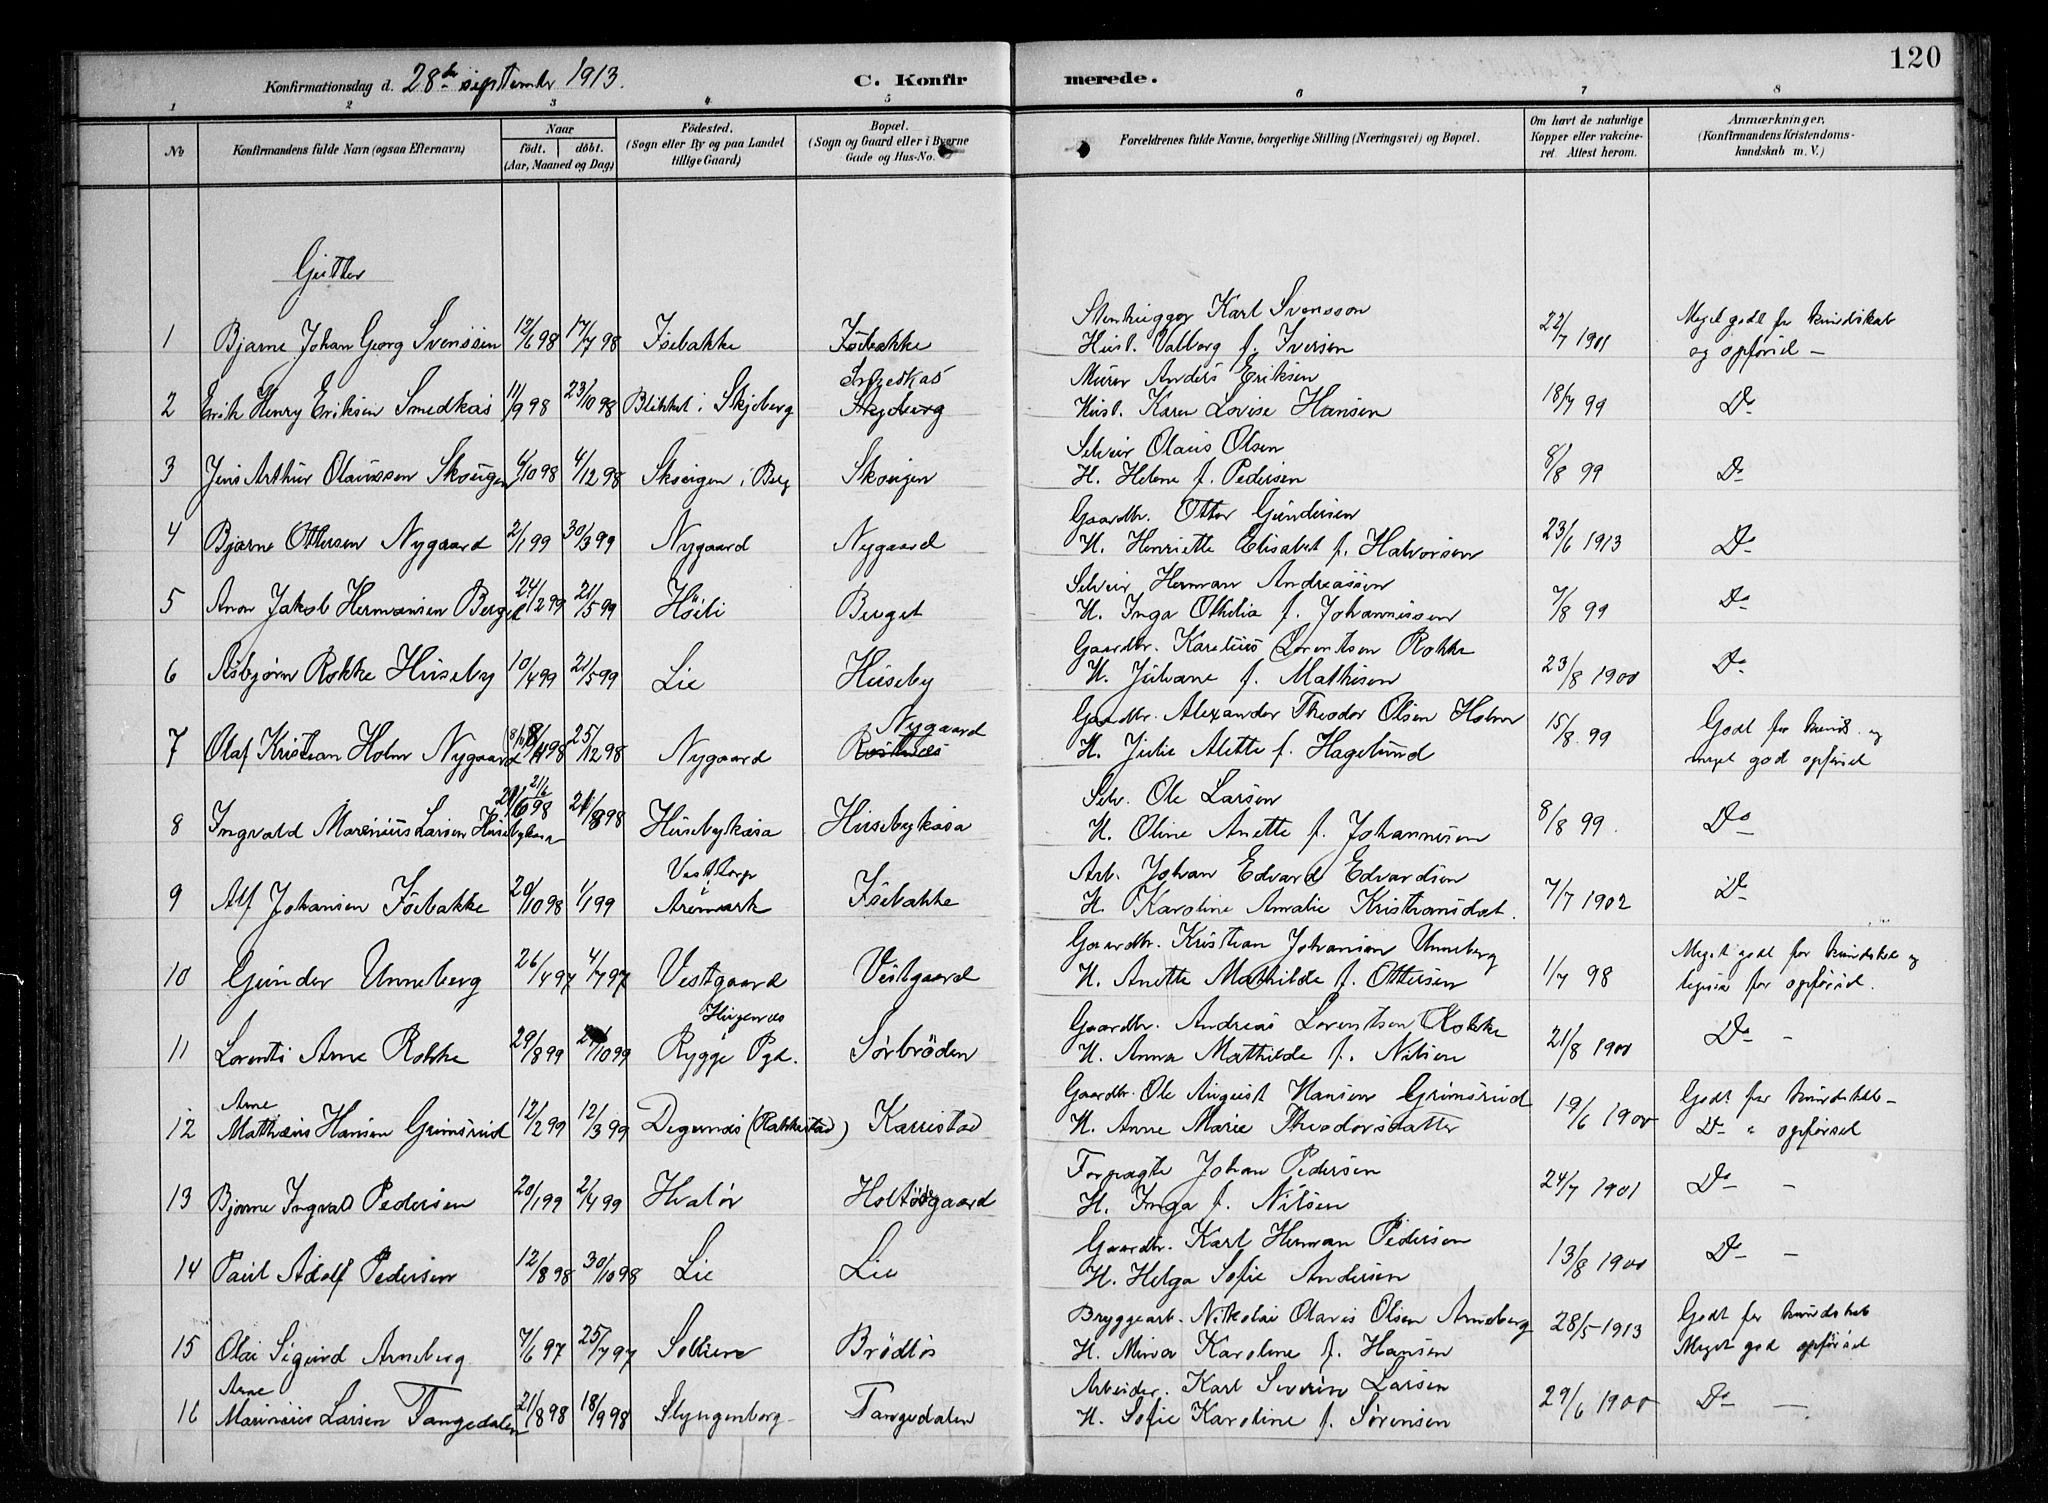 120
Konfirmationsdag d. 28de september 1913. C. Konfirmerede.
1 2 3 4 5 6 7 8
No
Konfirmandens fulde Navn (ogsaa Efternavn)
Naar
födt. döbt.
(Aar, Maaned og Dag)
Födested.
(Sogn eller By og paa Landet
tillige Gaard)
Bopæl.
(Sogn og Gaard eller i Byerne
Gade og Hus-No.)
Forældrenes fulde Navne, borgerlige Stilling (Næringsvei) og Bopæl.
Om havt de naturlige
Kopper eller vakcine-
ret. Attest herom.
Anmærkninger.
(Konfirmandens Kristendoms-
kundskab m. V.)
Gutter
1 Bjarne Johan Georg Svenssen 12/6 98 17/7 98 Isebakke Isebakke
Stenhugger Karl Svensson
Hust. Valborg f. Iversen
22/7 1901
Meget godt for kundskab
og opførsel -
2 Erik Henry Eriksen Smedkas 11/9 98 23/10 98 Blikket i Skjeberg Smedkas Skjeberg
Murer Anders Eriksen
Hust. Karen Lovise Hansen
18/7 99 Do
3 Jens Arthur Olaussen Skougen 6/10 98 4/12 98 Skougen i Berg Skougen
Selveir Olaus Olsen
H. Helene f. Pedersen
8/8 99 Do
4 Bjarne Ottersen Nygaard 2/1 99 30/3 99 Nygaard Nygaard
Gaardbr. Otter Gundersen
H. Henriette Elisabet f. Halvorsen
23/6 1913 Do
5 Anon Jakob Hermansen Berget 24/2 99 21/5 99 Höili Berget
Selveir Herman Andreassen
H. Inga Othilia f. Johannessen
7/8 99 Do
6 Asbjørn Rokke Huseby 10/4 99 21/5 99 Lie Huseby
Gaardbr. Karelius Lorentsen Rokke
H. Juliane f. Mathisen
23/8 1900 Do
7 Olaf Kristian Holm Nygaard 8/11 98 25/12 98 Nygaard Nygaard
Gaardbr. Alexander Theodor Olsen Holm
H. Julie Alette f. Hagelund
15/8 99
Godt for kunds. og
meget god opførsel
8 Ingvald Marenius Larsen Husebykasa 21/6 98 21/8 98 Husebykasa Husebykasa
Selv. Ole Larsen
H. Oline Anette f. Johannesen
8/8 99. Do
9 Alf Johansen Isebakke 20/10 98 1/1 99 Vesttorp Aremark Isebakke
Arb. Johan Edvard Edvardsen
H. Karoline Amalie Kristiansdat.
7/7 1902 Do
10 Gunder Unneberg 26/4 97 4/7 97 Vestgaard Vestgaard
Gaardbr. Kristian Johansen Unneberg
H. Anette Mathilde f. Ottersen
1/7 98
Meget godt for kundskab og
ligesaa for opførsel.
11 Lorents Arne Rokke 29/8 99 /10 99 Rygge Pgd. Sørbröden
Gaardbr. Andreas Lorentsen Rokke
H. Anna Mathilde f. Nilsen
21/8 1900 Do -
12 Arne Matthæus Hansen Grimsrud 12/2 99 12/3 99 Degernes (Rakkestad) Karrestad
Gaardbr. Ole August Hansen Grimsrud
H. Anne Marie Theodorsdatter
19/6 1900
Godt for kundskab -
Do " opførsel
13 Bjarne Ingvald Pedersen 20/1 99 2/4 99 Hvalør Holtösgaard
Forpagte Johan Pedersen
H. Inga f. Nilsen
24/7 1901 Do -
14 Paul Adolf Pedersen 12/8 98 30/10 98 Lie Lie
Gaardbr. Karl Herman Pedersen
H. Helga Sofie Andersen
13/8 1900 Do -
15 Olai Sigurd Arneberg 7/6 97 25/7 97 Brödlös
Bryggearb. Nikolai Olavis Olsen Arneberg
H. Mina Karoline f. Hansen
28/5-1913
Godt for kundskab
Meget god opførsel
16 Arne Marinius Larsen Tangedalen 21/8 98 18/9 98 Slyngenborg Tangedalen
Arbeider. Karl Severin Larsen
H. Sofie Karoline f. Sørensen
29/6 1900 Do -